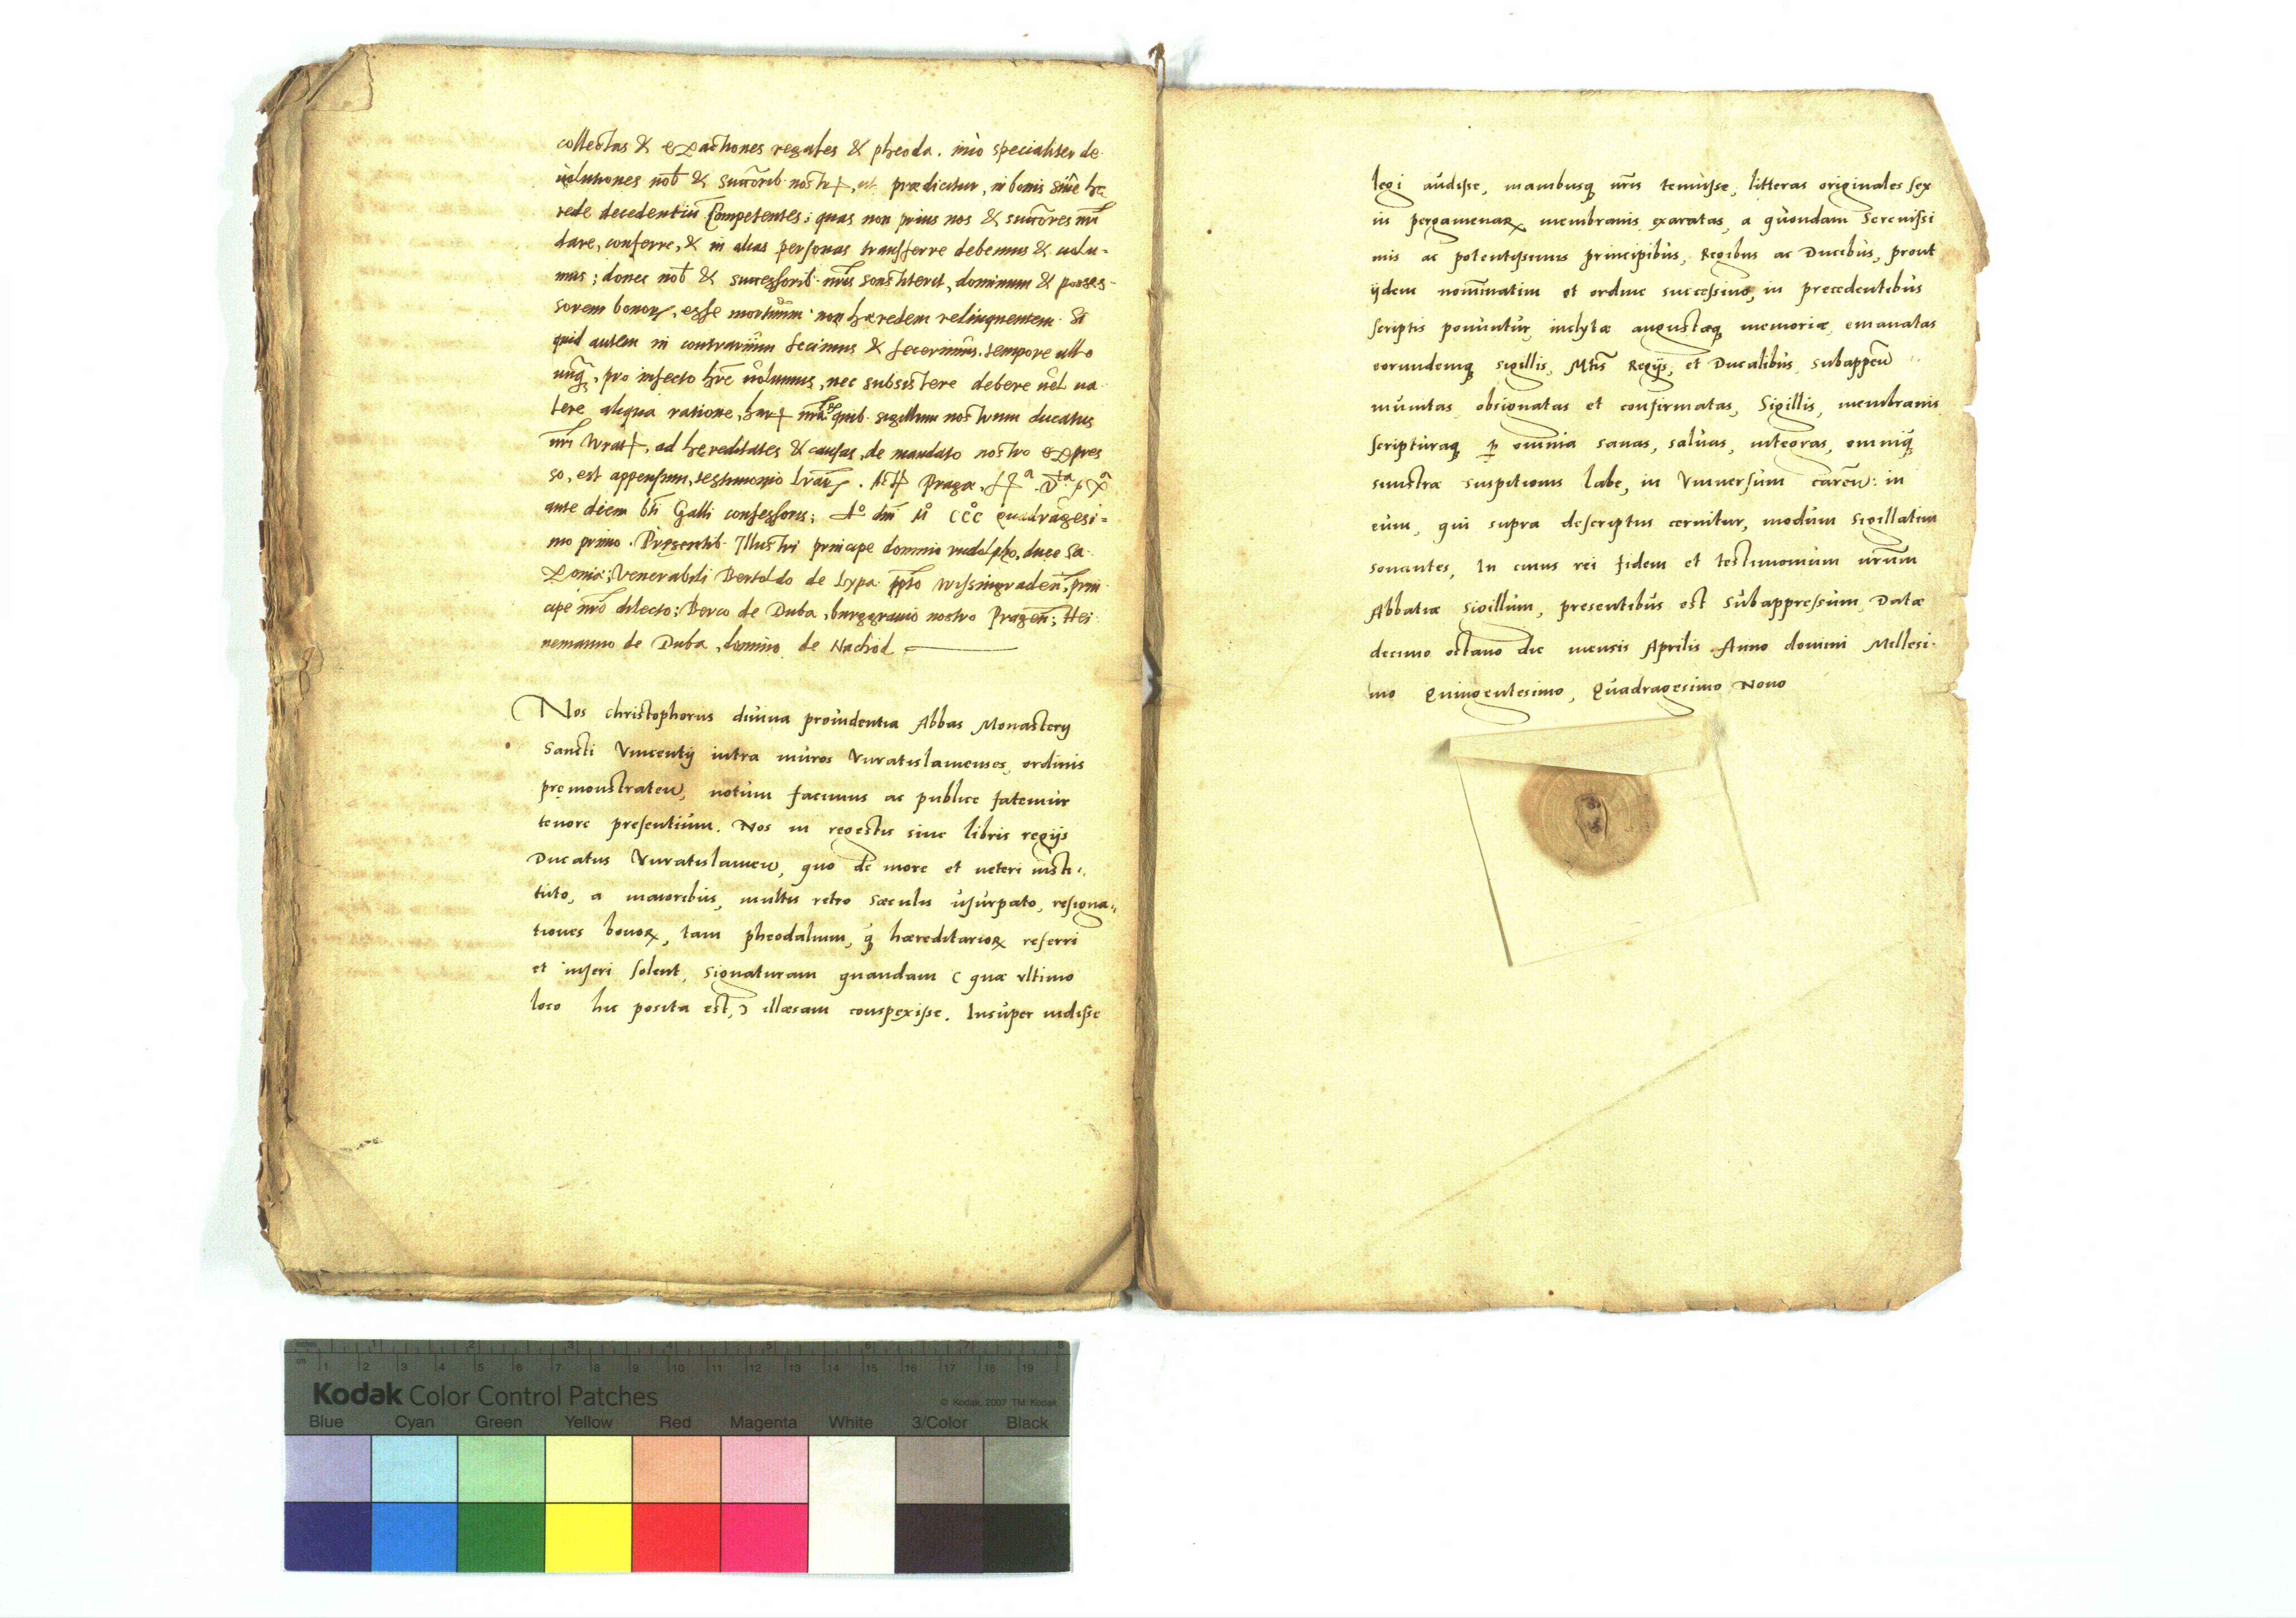 collectas & exactiones regales & pheoda. imò specialiter de-
uolutiones nob & succorib nostr, ut prædicitur, in bonis sine he
rede decedentiū competentes; quas non prius nos & succores nri
dare, conferre, & in alias personas transferre debemus & uolu-
mus; donec nob & successorib nris constiterit, dominum & posses-
sorem bonor, esse mortuum non hæredem relinquentem. Si
quid autem in contrarium fecimus & fecerimus, tempore ullo
unq, pro infecto hrē uolumus, nec subsistere debere uel ua
lere aliqua ratione, har nrar quib sigillum nostrum ducatus
nri Wrat, ad hereditates & causas, de mandato nostro expres
so, est appensum, testimonio lrar. Act Pragæ,
ante diem bti Galli confessoris; Ao dni Mo CCC quadragesi=
mo primo. Presentib Illustri principe domino rudolpho, duce Sa-
xoniæ; Venerabili Bertoldo de Lypa ppto Wissingraden, prin
cipe nro dilecto; Berco de Duba, burggrauio nostro Pragen; Hei
nemanno de Duba, domino de Nachod
Nos christophorus diuina prouidentia Abbas Monasterij
Sancti Vincentij intra muros Vuratislauienses, ordinis
premonstraten, notum facimus ac publice fatemur
tenore presentium. Nos in regestis siue libris regijs
Ducatus Vuratislauien, quo de more et ueteri insti-
tuto, a maioribus, multis retro sæculis usurpato, resigna-
tiones bonor, tam pheodalium, q hæreditarior referri
et inseri solent, signaturam quandam ( quæ vltimo
loco hic posita est, ) illæsam conspexisse. Insuper uidisse
legi audisse, manibusq nris tenuisse, litteras originales sex
in pergamenar membranis exaratas, a quondam Serenissi
mis ac potentissimis principibus, Regibus ac Ducibus, prout
ijdem nominatim et ordine successiuo, in precedentibus
scriptis ponuntur, inclytæ augustæq memoriæ, emanatas
eorundemq sigillis, Mtis Regijs, et Ducalibus, subappen
munitas obsignatas et confirmatas, Sigillis, membranis
scripturaq p omnia sanas, saluas, integras, omniq
sinistræ suspitionis labe, in Vniuersum caren: in
eum, qui supra descriptus cernitur, modum sigillatim
sonantes, In cuius rei fidem et testimonium nrum
Abbatiæ sigillum, presentibus est subappressum, Datæ
decimo octauo die mensis Aprilis Anno domini Millesi-
mo Quingentesimo, Quadragesimo Nono
Kodak Color Control Patches
© Kodak, 2007 TM: Kodak
Blue Cyan Green Yellow Red Magenta White 3/Color Black